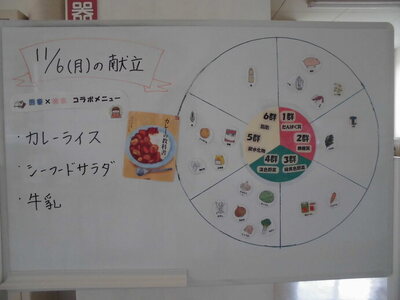 器
11/6(月)の献立
図書×給食 コラボメニュー
・カレーライス
・シーフードサラダ
・牛乳
カレーの教科書
6群
脂肪
1群
たんぱく質
5群
炭水化物
2群
無機質
4群
淡色野菜
3群
緑黄色野菜